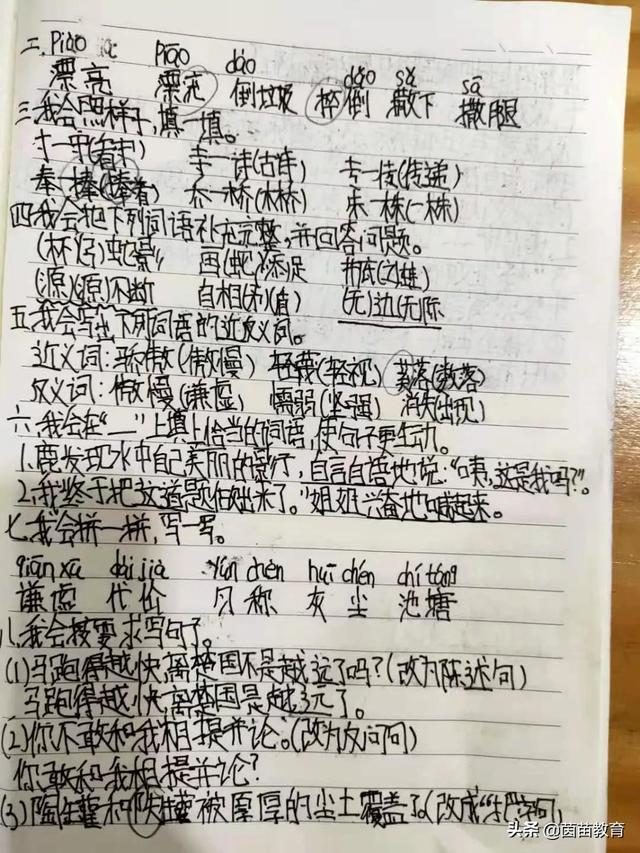 二、piào piāo dào dǎo sǎ sā
漂亮 漂流 倒垃圾 摔倒 撒下 撒腿
三我会照样子,填一填。
寸一守(看守) 寺一诗(古诗) 专一传(传递)
奉一捧(捧着) 乔一桥(木桥) 朱一株(一株)
四我会把下列词语补充完整,并回答问题。
(杯)(弓)蛇影 画(蛇)添足 井底(之)(蛙)
(源)(源)不断 自相(矛)(盾) (无)边(无)际
五我会写出下列词语的近反义词。
近义词:骄傲(傲慢) 轻蔑(轻视) (散落)
反义词:傲慢(谦虚) 懦弱(坚强) 消失(出现)
六我会在“__”上填上恰当的词语,使句子更生动。
1.鹿发现水中自己美丽的影子,自言自语地说:“咦,这是我吗?”。
2.“我终于把这道题做出来了。”姐姐兴奋地喊起来。
七我会拼一拼,写一写。
qiān xū dài jià yún chèn huī chén chí táng
谦虚 代价 匀称 灰尘 池塘
八.我会按要求写句子。
(1)马跑得越快离楚国不是越远了吗?(改为陈述句)
马跑得越快离楚国是越远了。
(2)你不敢和我相提并论。(改为反问句)
你敢和我相提并论?
(3)陶罐和铁罐被厚厚的尘土覆盖了。(改成“把”字句)
头条 @茵苗教育